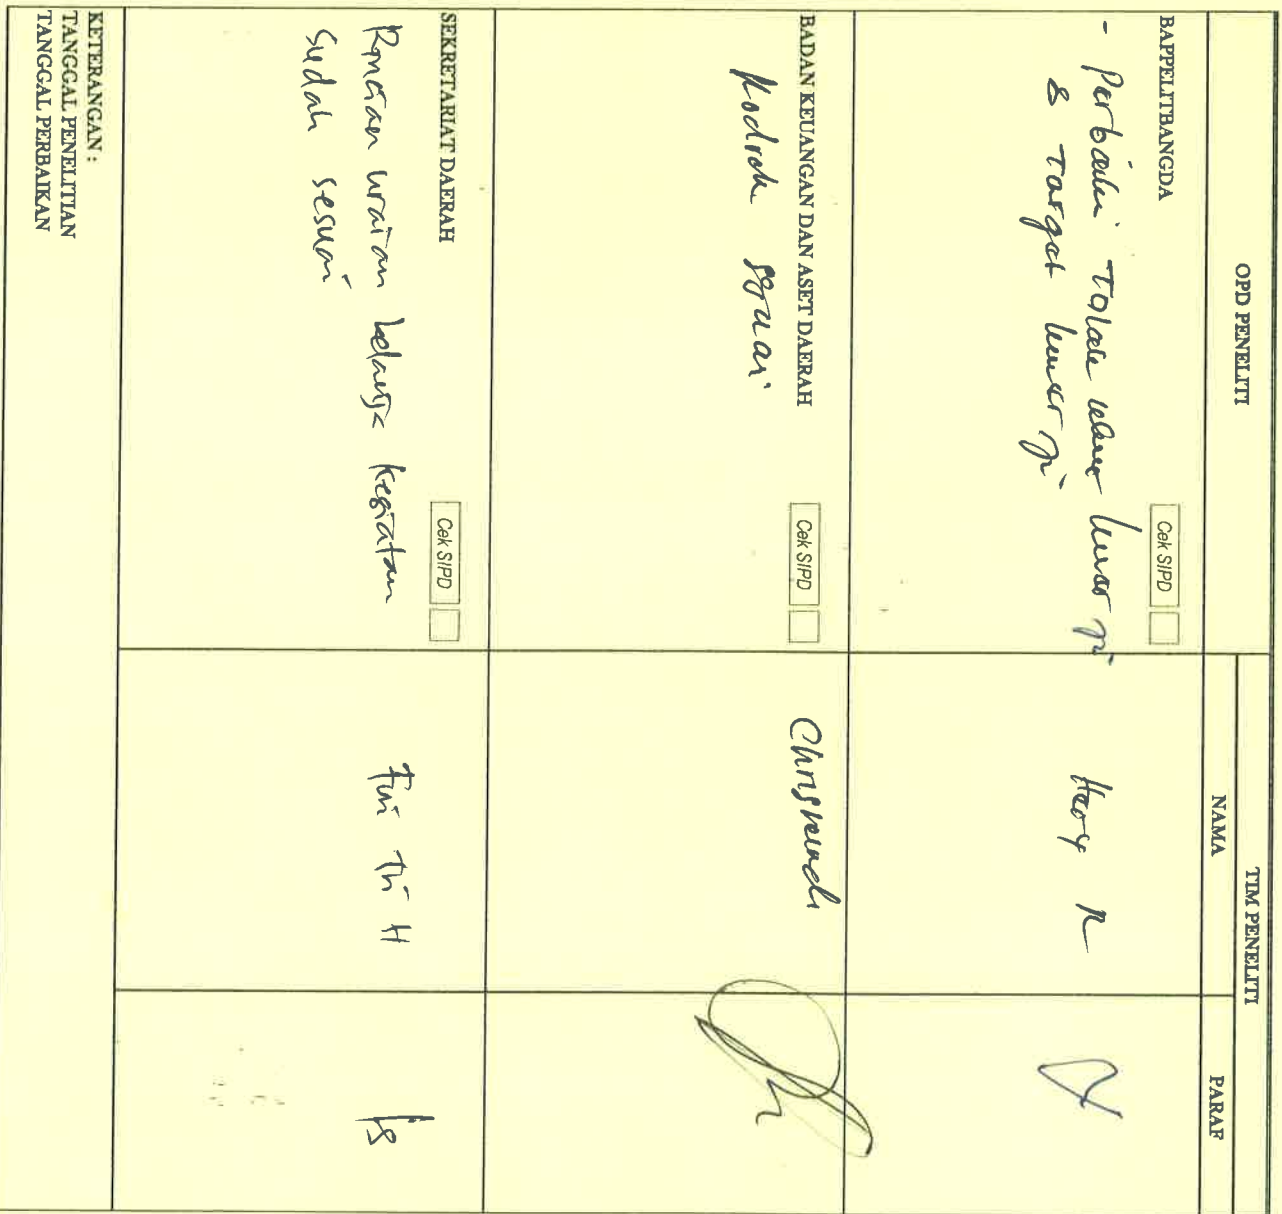 OPD PENELITI
TIM PENELITI
NAMA
PARAF
BAPPELITBANGDA
Cek SIPD
- Perbaiki Tolak
& Target
Hery R
BADAN KEUANGAN DAN ASET DAERAH
Cek SIPD
sesuai
SEKRETARIAT DAERAH
Cek SIPD
Rincian uraian belanja kegiatan
sudah sesuai
Tri H
KETERANGAN :
TANGGAL PENELITIAN
TANGGAL PERBAIKAN